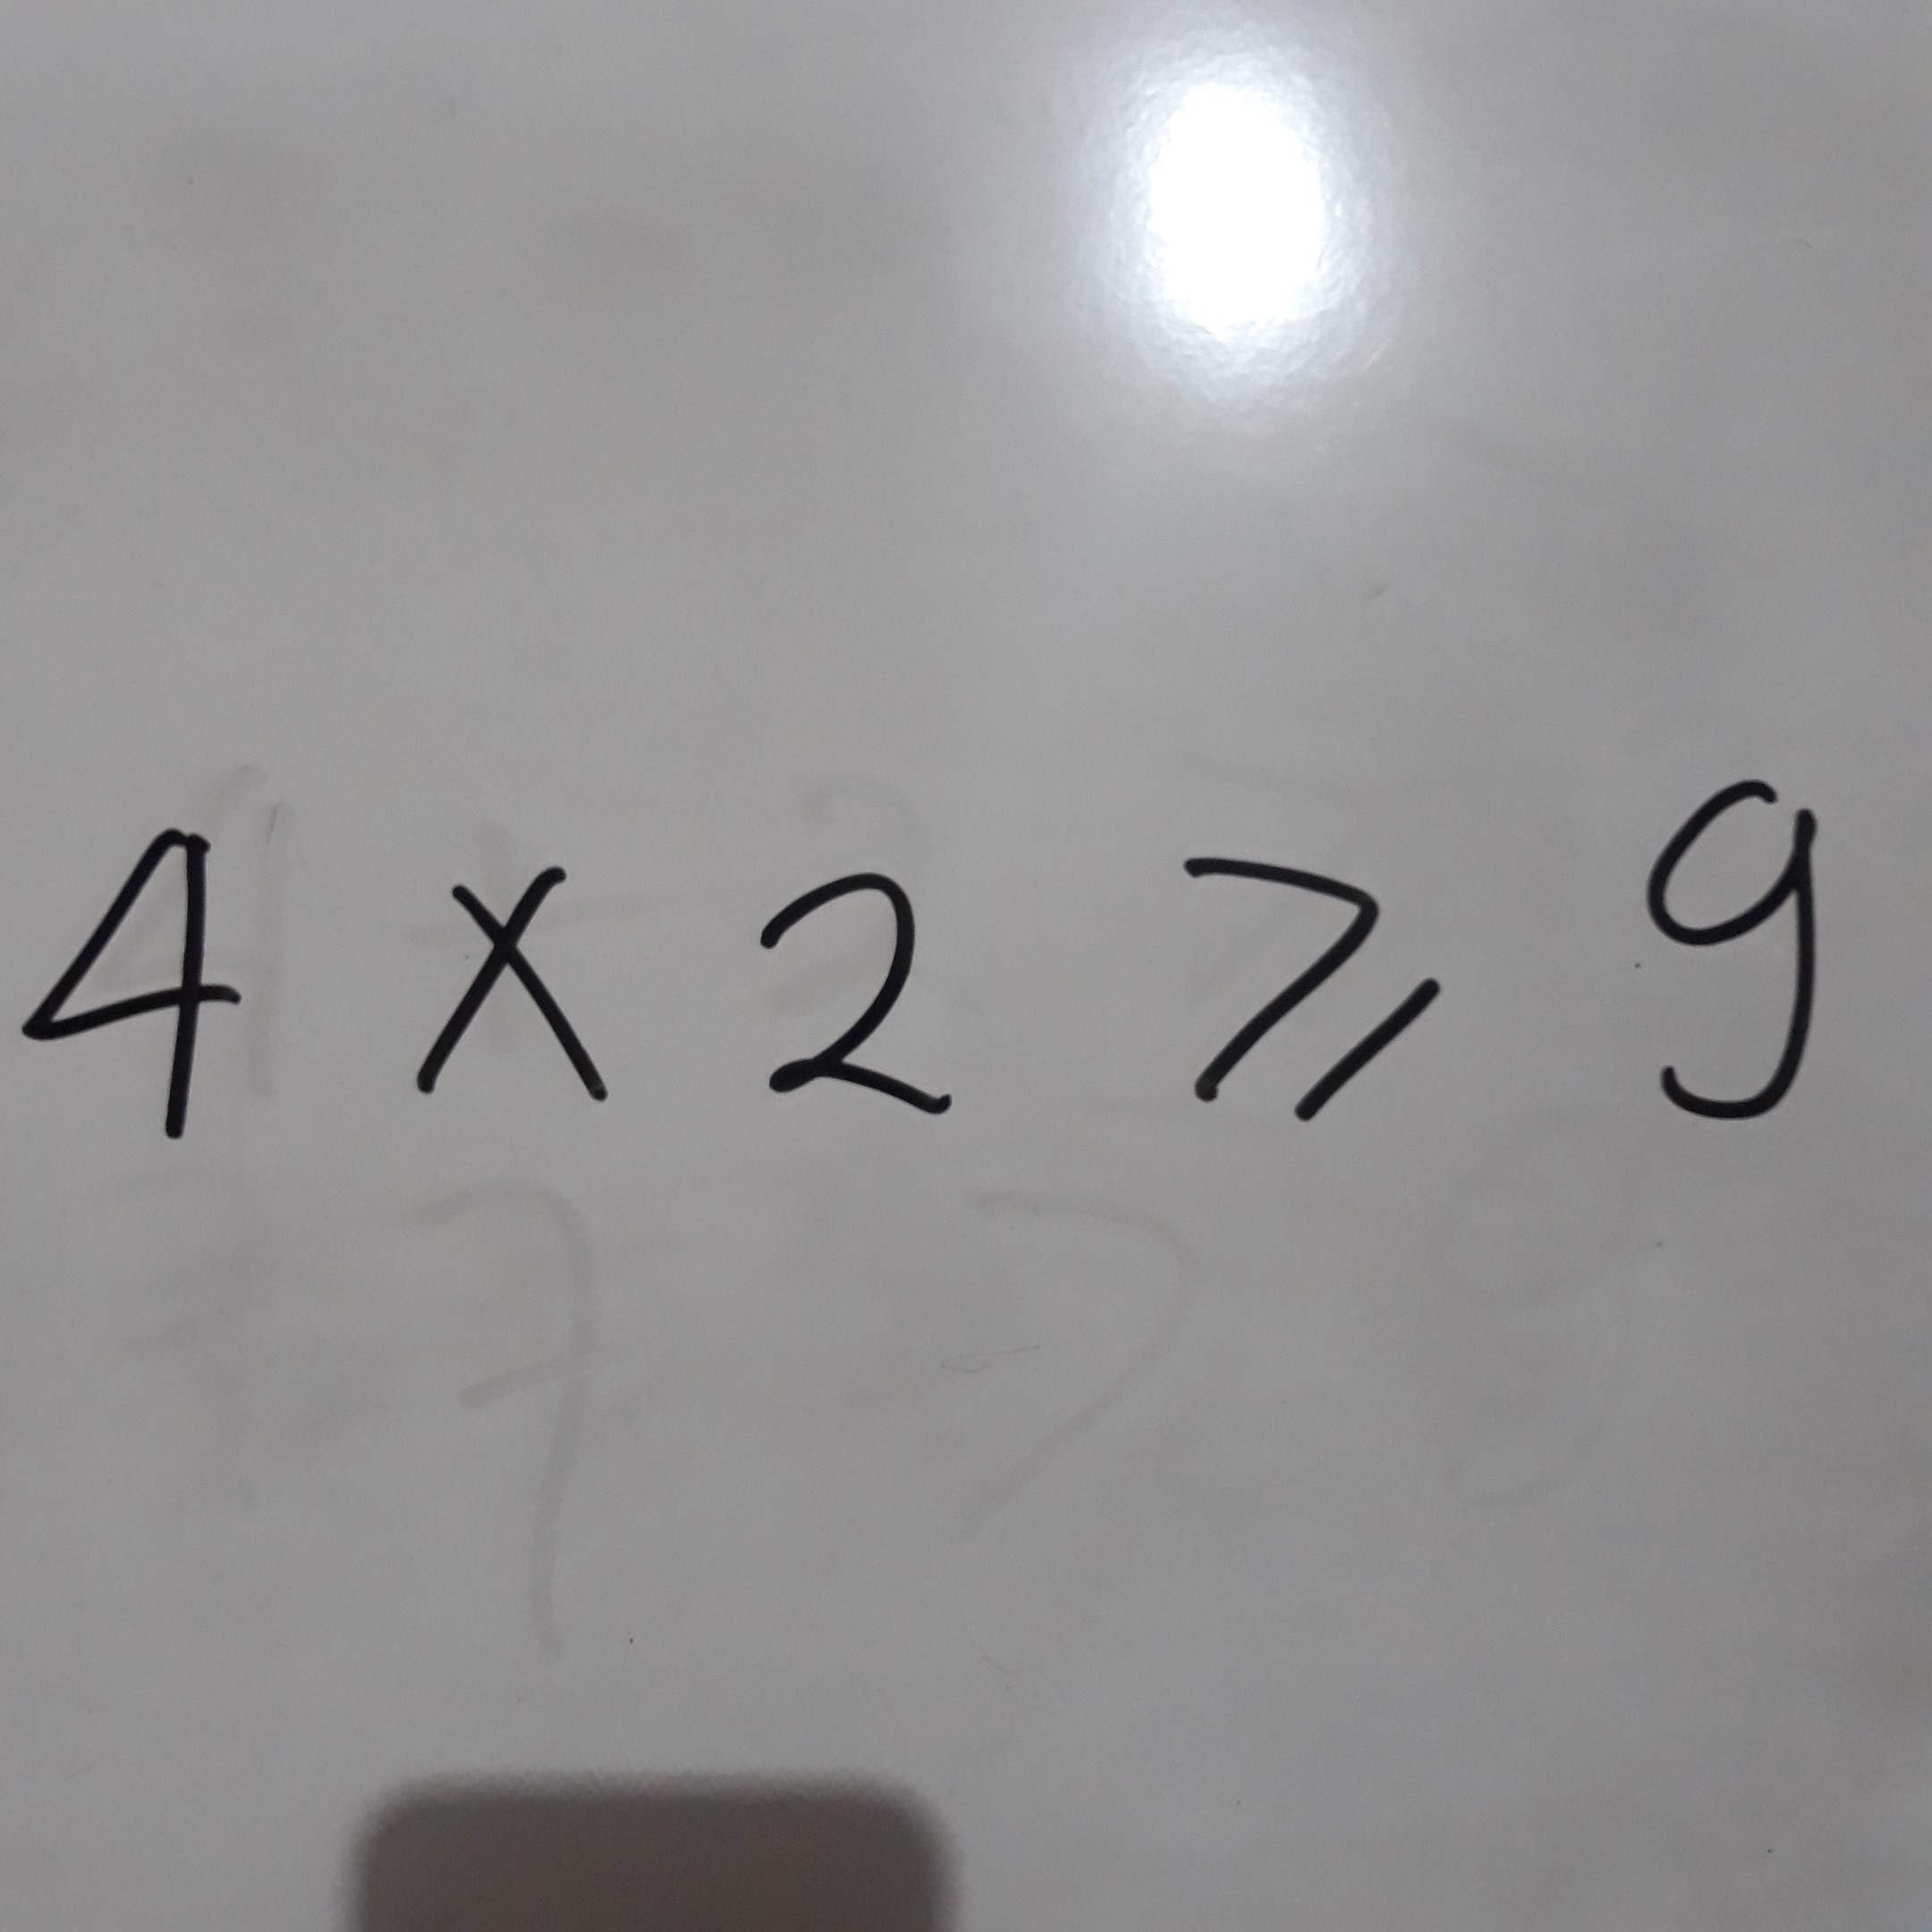 4 × 2 ⩾ 9